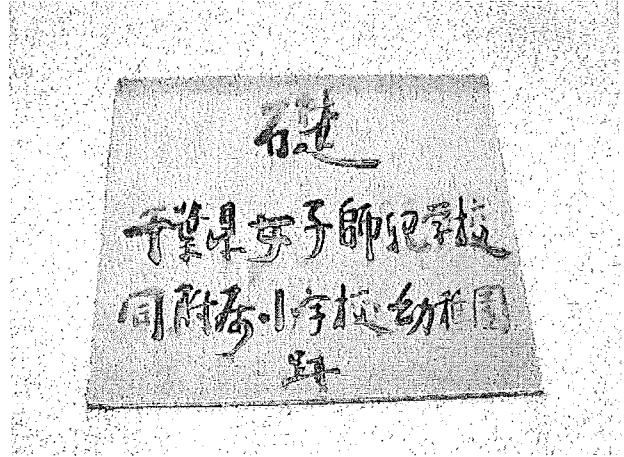 礎
千葉県女子師範学校
同附属小学校幼稚園
跡